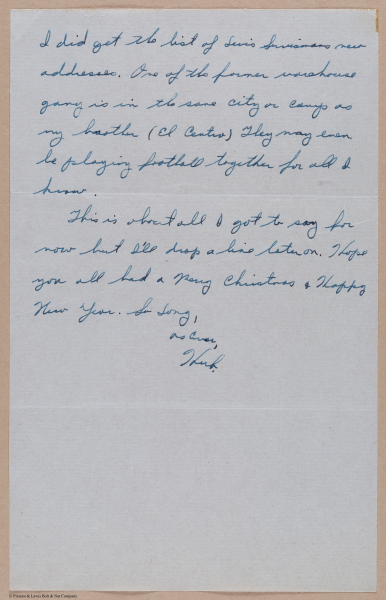 I did get the list of Servicemens new
addresses. One of the former warehouse
gang is in the same city or camp as
my brother (El Centro) They may even
be playing football together for all I
know.
This is about all I got to say for
now but I'll drop a line later on. Hope
you all had a Merry Christmas & Happy
New Year. So Long,
As Ever,
Herb.
© Pinsino & Lewis Bolt & Nut Company